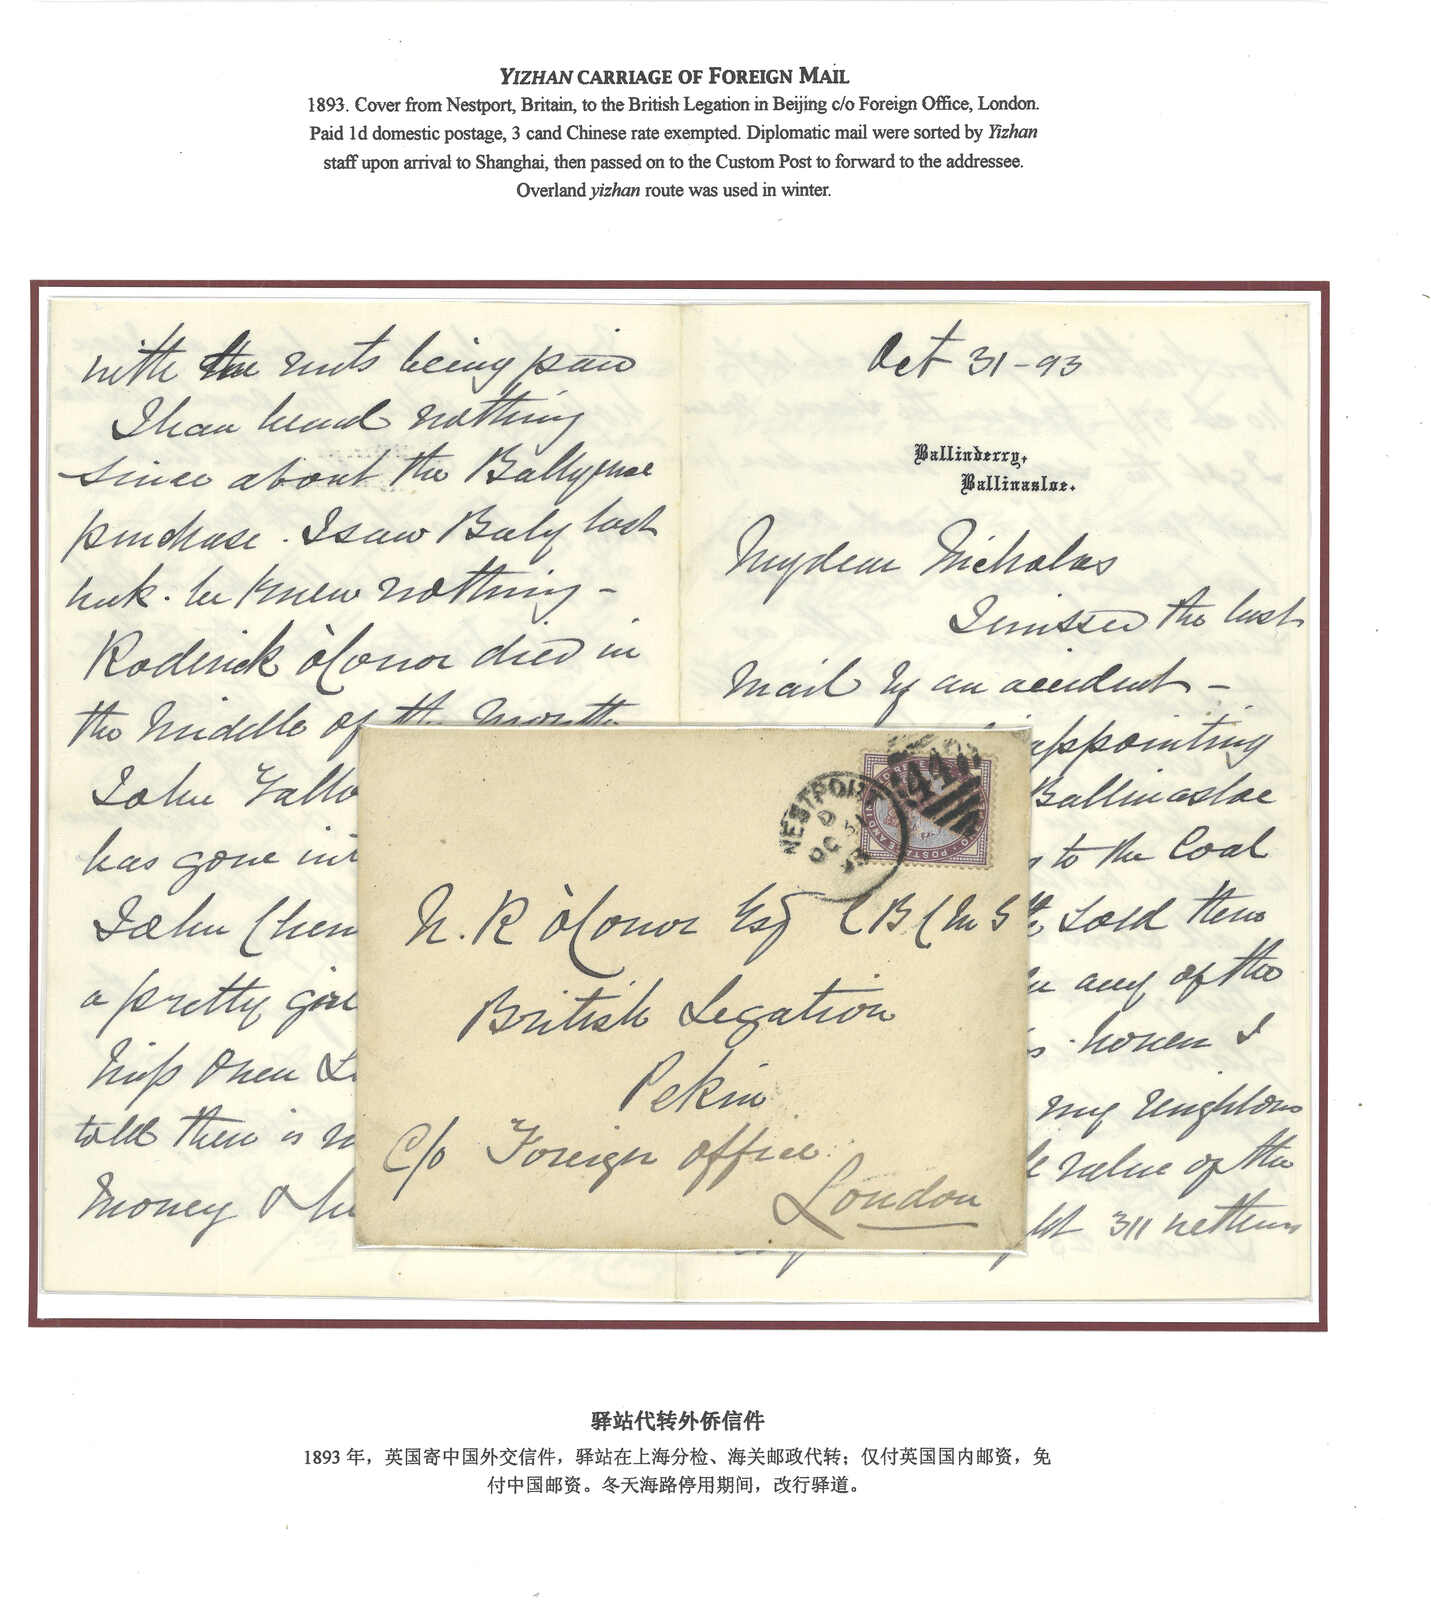 YIZHAN CARRIAGE OF FOREIGN MAIL
1893. Cover from Nestport, Britain, to the British Legation in Beijing c/o Foreign Office, London.
Paid 1d domestic postage, 3 cand Chinese rate exempted. Diplomatic mail were sorted by Yizhan
staff upon arrival to Shanghai, then passed on to the Custom Post to forward to the addressee.
Overland yizhan route was used in winter.
with the rents being paid
I have heard nothing
since about the
purchase. I saw last
week. he knew nothing -
Roderick O'Conor died in
the middle of the month
John
has gone int
John
a pretty girl
Miss
told there is n
Money &
Oct 31-93
Ballinderry,
Ballinasloe.
My dear Nicholas
I missed the last
Mail by an accident -
appointing
Ballinasloe
to the Coal
sold them
any of the
my neighbors
value of the
311
NESTPORT
D
OC 31
93
447
N. R O'Conor Esq C B C M G
British Legation
Pekin
C/o Foreign office
London
驿站代转外侨信件
1893 年，英国寄中国外交信件，驿站在上海分检、海关邮政代转；仅付英国国内邮资，免
付中国邮资。冬天海路停用期间，改行驿道。